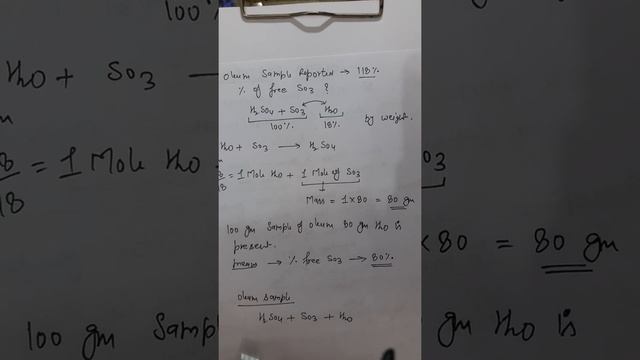 Oleum Sample Reported → 118%
% of free SO3 ?
H2SO4 + SO3 H2O
100% 18% by weight.
H2O + SO3 → H2SO4
18/18 = 1 Mole H2O + 1 Mole of SO3
Mass = 1×80 = 80 gm
100 gm Sample of oleum 80 gm H2O is
present.
means → % free SO3 → 80%
Oleum Sample
H2SO4 + SO3 + H2O